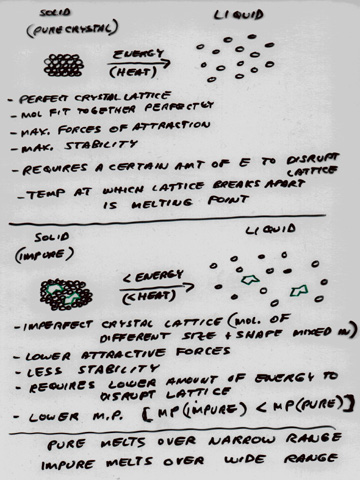 SOLID LIQUID
(PURE CRYSTAL)
ENERGY
(HEAT)
- PERFECT CRYSTAL LATTICE
- MOL FIT TOGETHER PERFECTLY
- MAX. FORCES OF ATTRACTION
- MAX. STABILITY
- REQUIRES A CERTAIN AMT OF E TO DISRUPT
LATTICE
- TEMP AT WHICH LATTICE BREAKS APART
IS MELTING POINT
SOLID LIQUID
(IMPURE)
< ENERGY
(<HEAT)
- IMPERFECT CRYSTAL LATTICE (MOL. OF
DIFFERENT SIZE + SHAPE MIXED IN)
- LOWER ATTRACTIVE FORCES
- LESS STABILITY
- REQUIRES LOWER AMOUNT OF ENERGY TO
DISRUPT LATTICE
- LOWER M.P. [MP(IMPURE) < MP(PURE)]
PURE MELTS OVER NARROW RANGE
IMPURE MELTS OVER WIDE RANGE